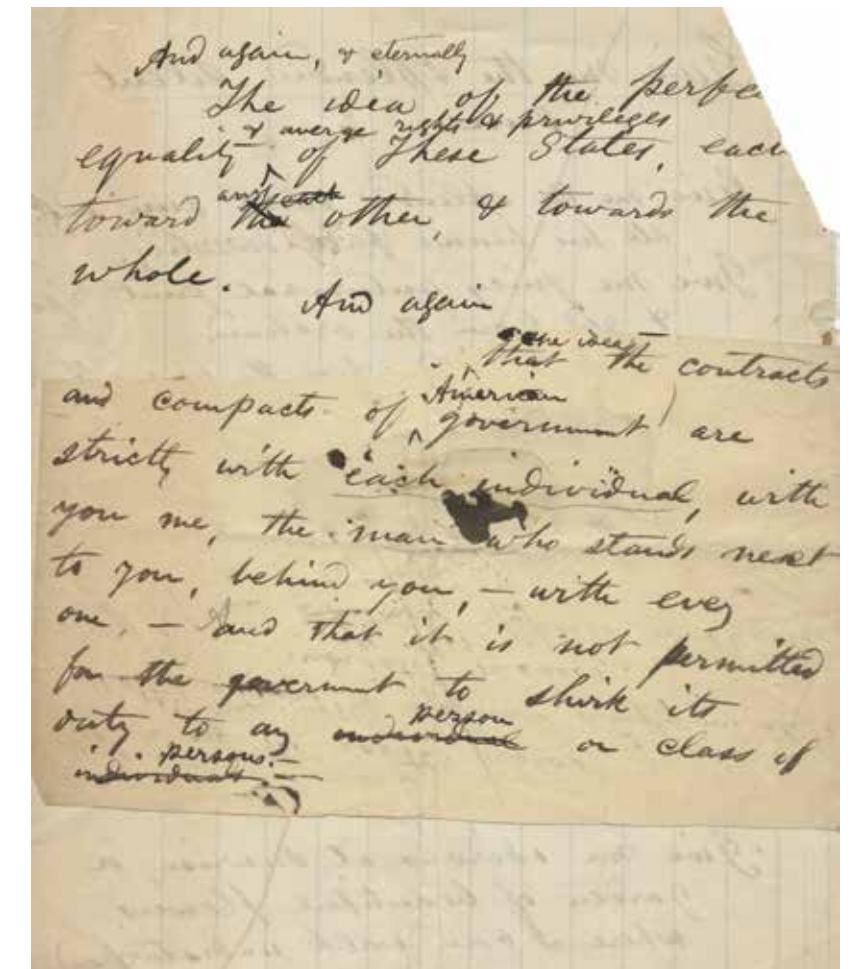 And again, & eternally
The idea of the perfec
& average rights & privileges
equality of These States, each
any each
toward the other, & towards the
whole.
And again
the idea
that the contracts
American
and compacts of government are
strictly with each individual, with
you me, the man who stands next
to you, behind you, — with every
one, — And that it is not permitted
for the government to shirk its
person
duty to any individual or class of
persons. —
individuals. —